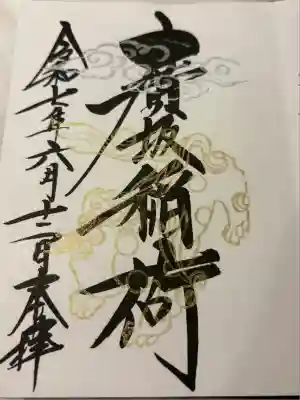 坂稲荷
令和七年六月十二日奉拝